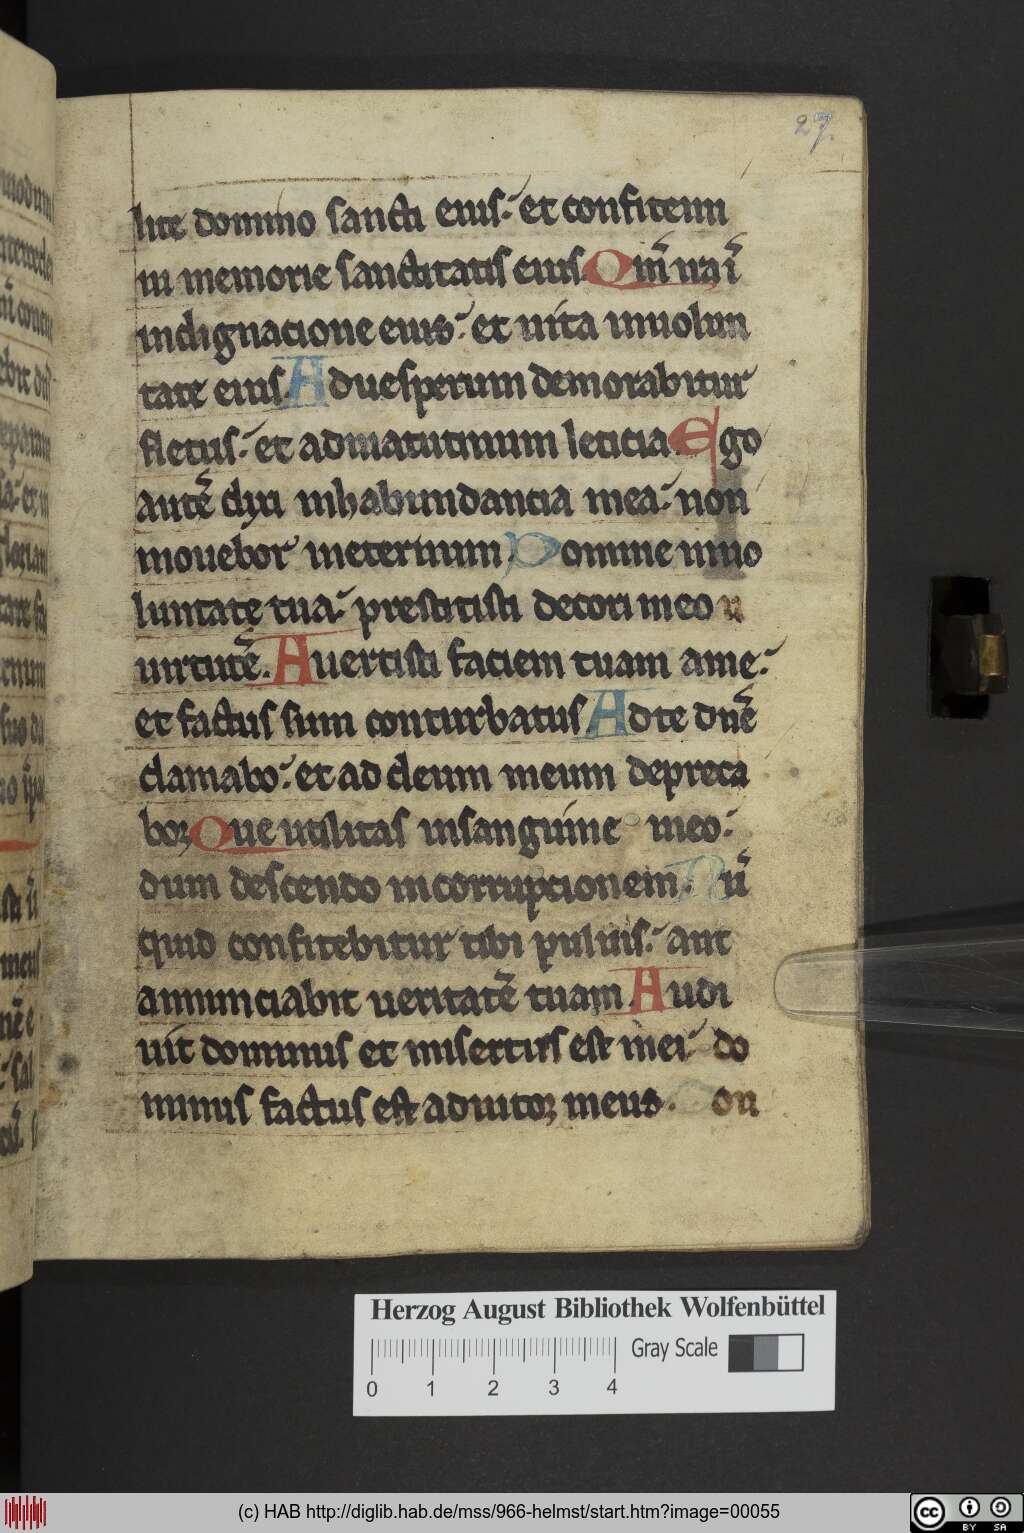 27.
lite domino sancti eius. et confitemi
ni memorie sanctitatis eius. Qm̄ ira ī
indignacione eius. et uita inuolun
tate eius. Ad uesperum demorabitur
fletus. et admatutinum leticia. Ego
autē dixi inhabundancia mea. non
mouebor ineternum. Domine inuo
luntate tua. prestitisti decori meo u
uirtutē. Auertisti faciem tuam ame.
et factus sum conturbatus. Ad te dnē
clamabo. et ad deum meum depreca
bor. Que utilitas insanguine meo.
dum descendo incorrupcionem. Nū
quid confitebitur tibi puluis. aut
annunciabit ueritatē tuam. Audi
uit dominus et misertus est mei. do
minus factus est adiutor meus. on
Herzog August Bibliothek Wolfenbüttel
Gray Scale
0 1 2 3 4
(c) HAB http://diglib.hab.de/mss/966-helmst/start.htm?image=00055
cc BY SA